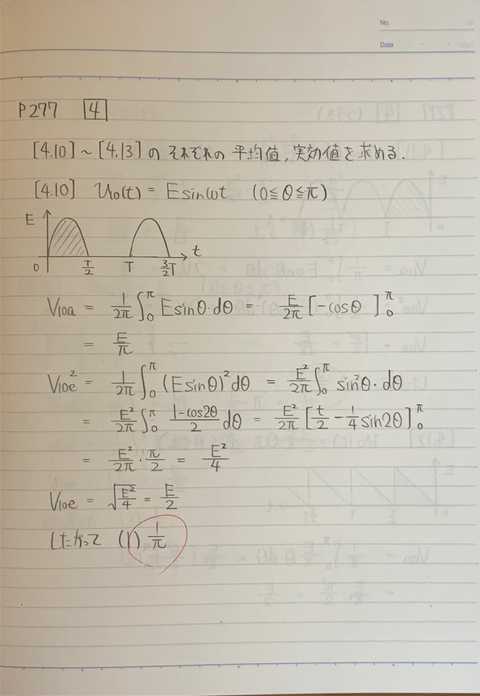 No.
Date
P277 [4]
[4.10]~[4.13]のそれぞれの平均値,実効値を求める.
[4.10] v₀(t) = E sinωt (0≦θ≦π)
E
0 T/2 T 3/2T t
V10a = 1/2π ∫₀^π E sinθ・dθ = E/2π [-cosθ]₀^π
= E/π
V10e² = 1/2π ∫₀^π (E sinθ)² dθ = E²/2π ∫₀^π sin²θ・dθ
= E²/2π ∫₀^π (1-cos2θ)/2 dθ = E²/2π [t/2 - 1/4 sin2θ]₀^π
= E²/2π・π/2 = E²/4
V10e = √(E²/4) = E/2
したがって (1) 1/π